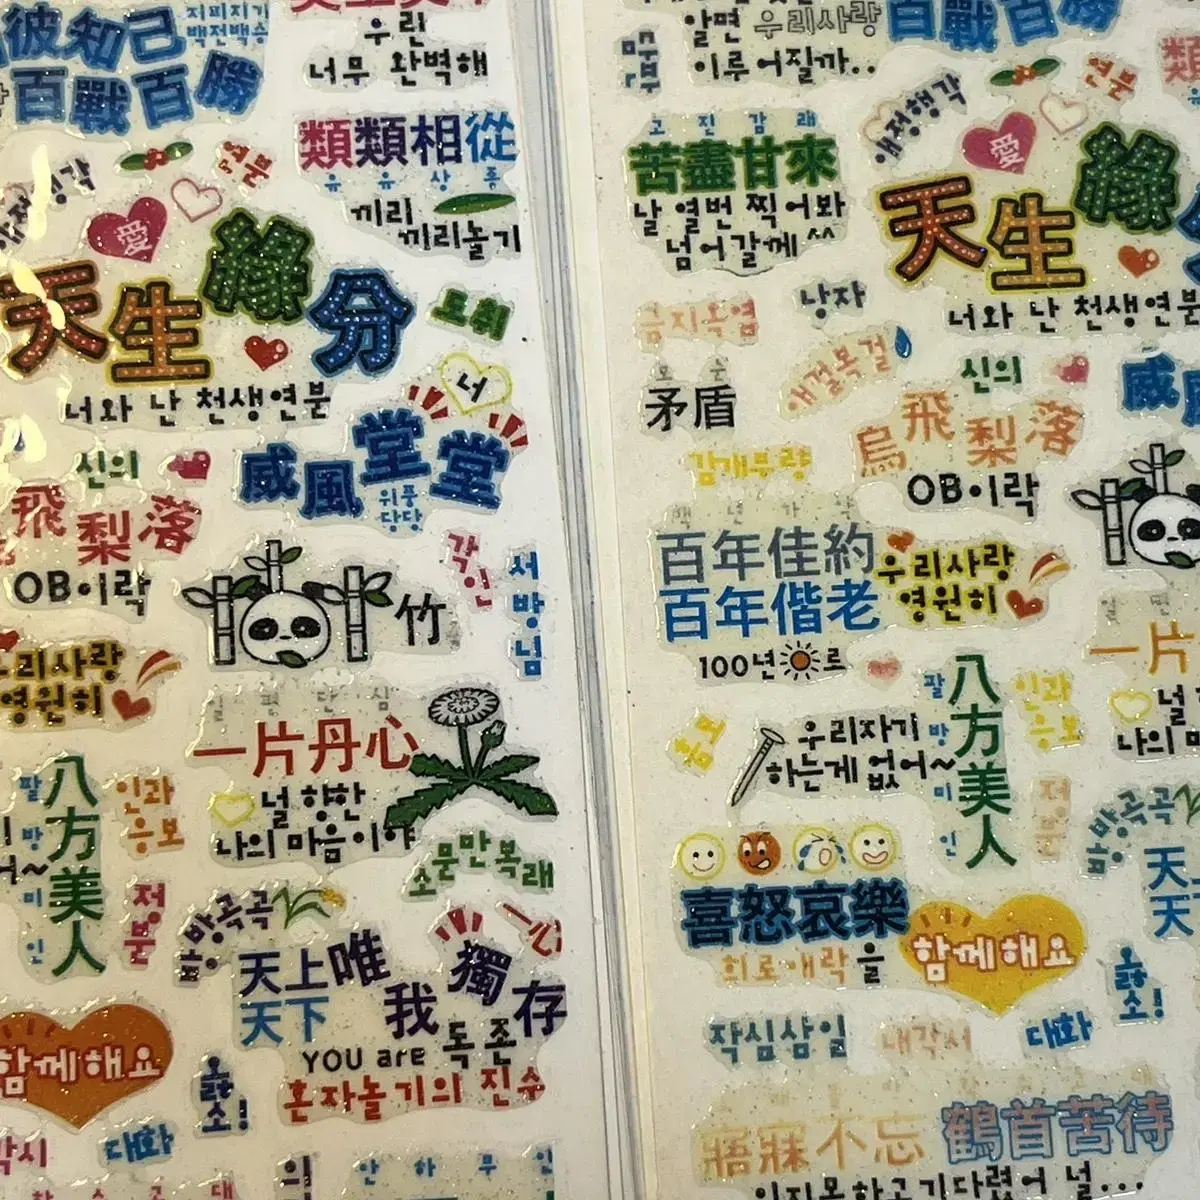 彼知己
지피지기
백전백승
百戰百勝
우린
너무 완벽해
類類相從
유유상종
끼리
끼리놀기
연분
愛
天生緣分
너와 난 천생연분
도취
너
신의
威風堂堂
위풍
당당
飛梨落
OB이락
각인
서방님
竹
우리사랑
영원히
일편단심
一片丹心
널 향한
나의 마음이야
팔방미인
八方美人
인과
응보
소문만복래
정분
방방곡곡
一心
天上
天下
唯我獨存
YOU are 독존
혼자놀기의 진수
함께해요
옳소!
대화
안하무인
알면
우리사랑
이루어질까..
百戰百勝
고진감래
苦盡甘來
날 열번 찍어봐
넘어갈께^^
애정행각
연분
愛
天生緣
너와 난 천생연분
금지옥엽
낭자
모순
矛盾
애걸복걸
신의
감개무량
烏飛梨落
OB이락
威
백년가약
百年佳約
百年偕老
100년 로
우리사랑
영원히
一片
널
나의
흠모
우리자기
하는게 없어~
팔방미인
八方美人
인과
응보
정분
방방곡곡
喜怒哀樂
희로애락을
함께해요
옳소!
작심삼일
내각서
대화
寤寐不忘
鶴首苦待
잊지못하고 기다렸어 널...